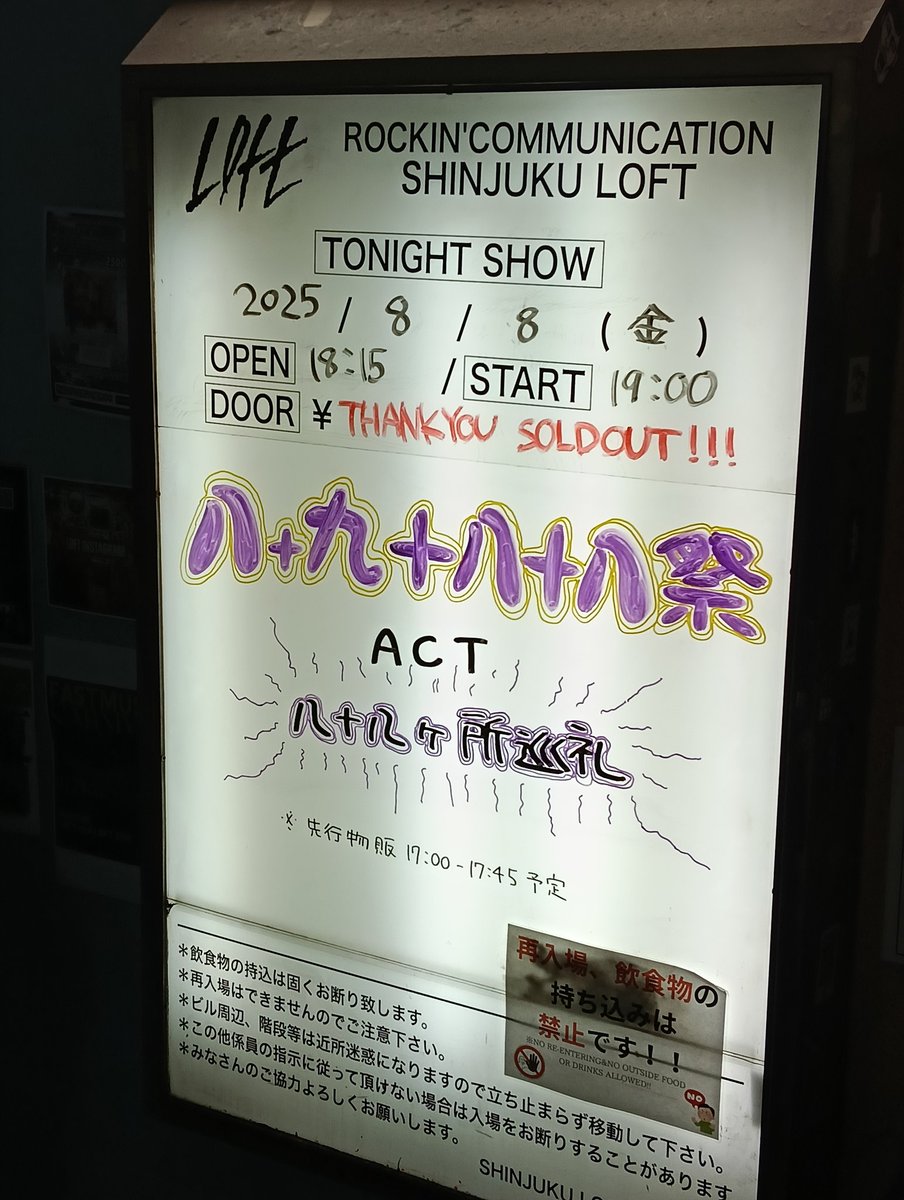 LOFT
ROCKIN'COMMUNICATION
SHINJUKU LOFT
TONIGHT SHOW
2025 / 8 / 8 (金)
OPEN 18:15 / START 19:00
DOOR ¥ THANKYOU SOLDOUT!!!
八+九十八+八祭
ACT
八十八ヶ所巡礼
※先行物販 17:00-17:45 予定
再入場、飲食物の
持ち込みは
禁止です！！
※NO RE-ENTERING&NO OUTSIDE FOOD
OR DRINKS ALLOWED!!
NO
*飲食物の持込は固くお断り致します。
*再入場はできませんのでご注意下さい。
*ビル周辺、階段等は近所迷惑になりますので立ち止まらず移動して下さい。
*この他係員の指示に従って頂けない場合は入場をお断りすることがあります
*みなさんのご協力よろしくお願いします。
SHINJUKU LO